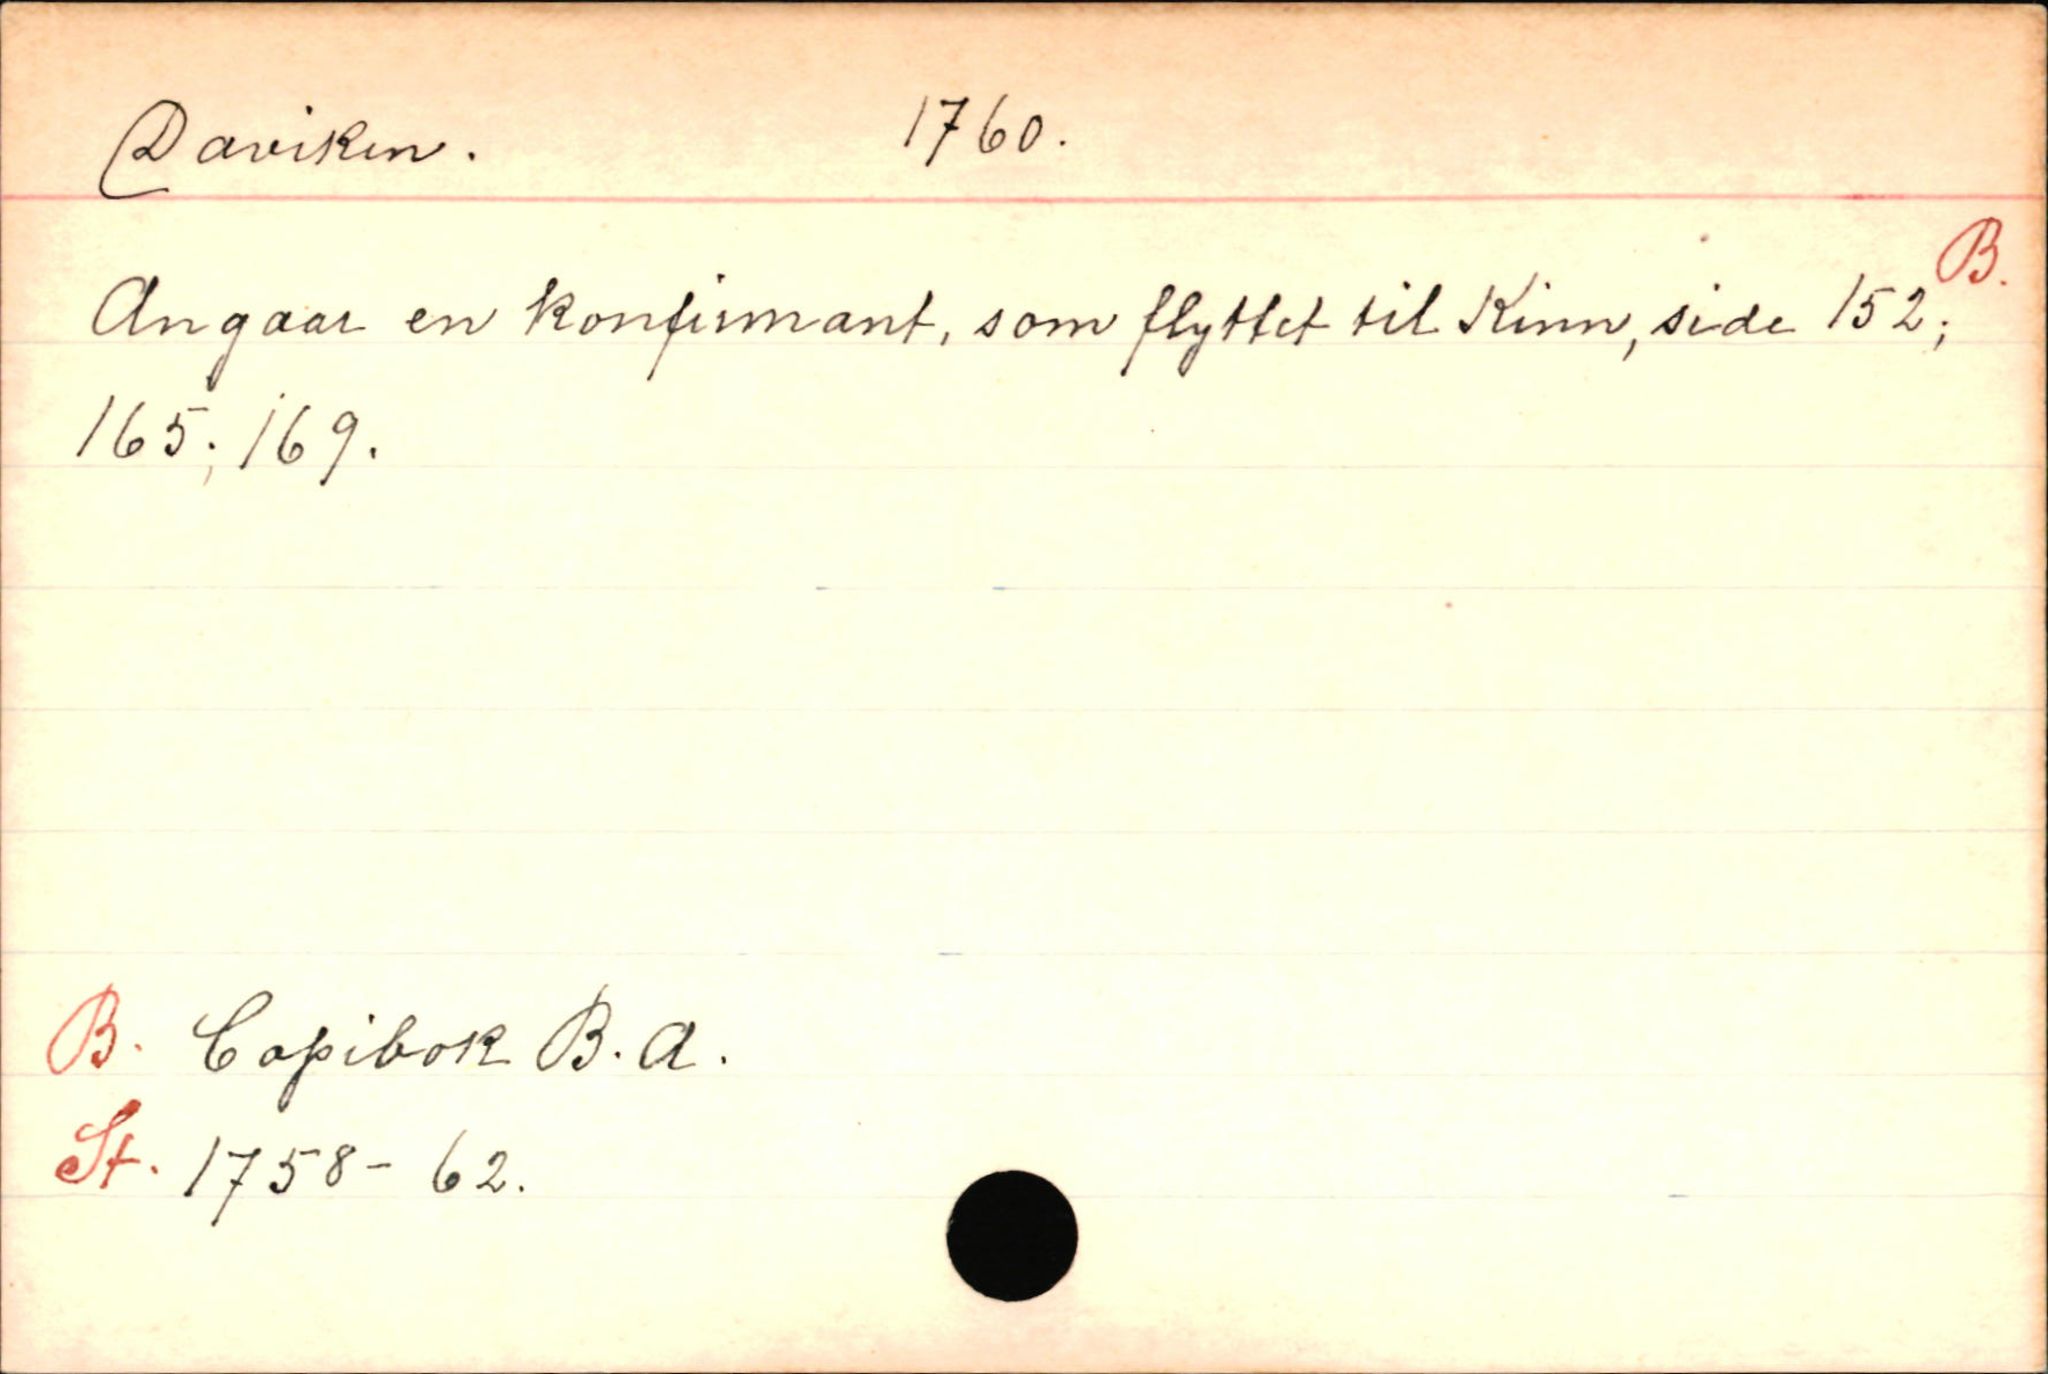 Daviken. 1760.
B.
Angaar en konfirmant, som flyttet til Kinn, side 152;
165; 169.
B. Copibok B. A.
St. 1758-62.